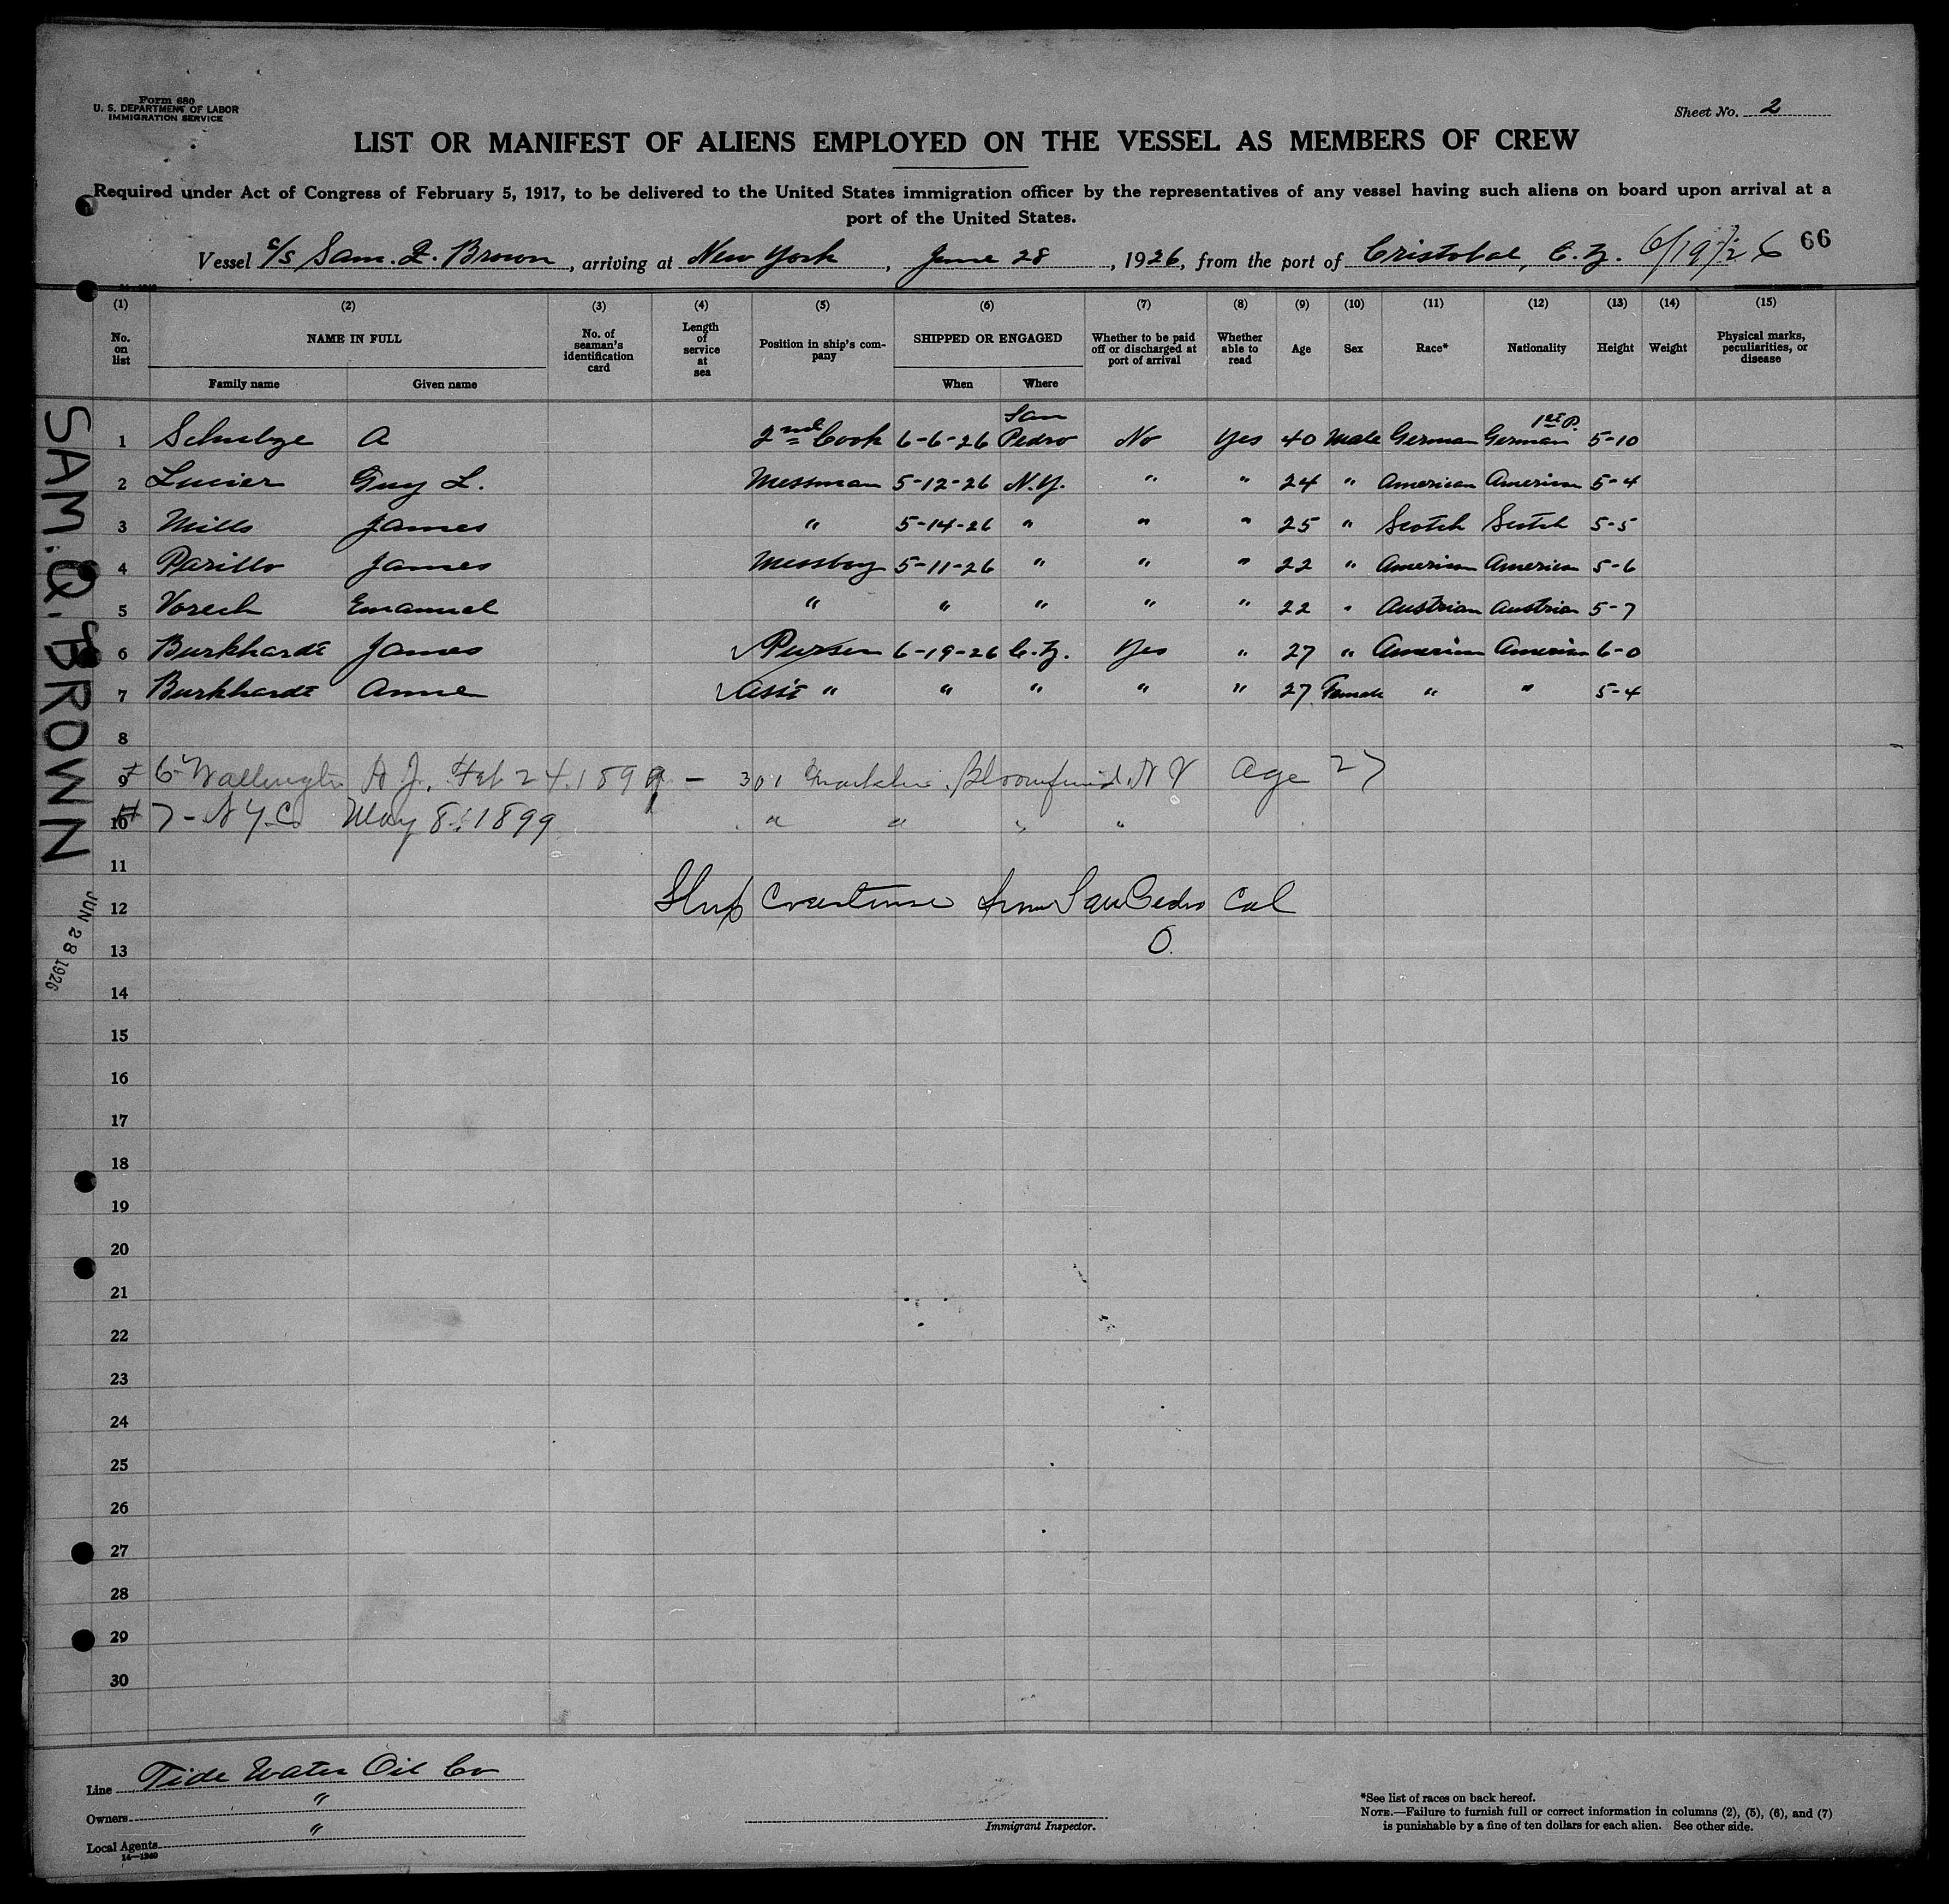 Form 680
U. S. DEPARTMENT OF LABOR
IMMIGRATION SERVICE
Sheet No. 2
LIST OR MANIFEST OF ALIENS EMPLOYED ON THE VESSEL AS MEMBERS OF CREW
Required under Act of Congress of February 5, 1917, to be delivered to the United States immigration officer by the representatives of any vessel having such aliens on board upon arrival at a
port of the United States.
66
Vessel S/S Sam. Q. Brown, arriving at New York, June 28, 1926, from the port of Cristobal, C. Z. 6/19/26
(1) (2) (3) (4) (5) (6) (7) (8) (9) (10) (11) (12) (13) (14) (15)
No. on list NAME IN FULL Family name Given name No. of seaman's identification card Length of service at sea Position in ship's company SHIPPED OR ENGAGED When Where Whether to be paid off or discharged at port of arrival Whether able to read Age Sex Race* Nationality Height Weight Physical marks, peculiarities, or disease
1 Schulze A 2nd Cook 6-6-26 San Pedro No Yes 40 Male German German 1st P. 5-10
2 Lucier Guy L. Messman 5-12-26 N.Y. " " 24 " American American 5-4
3 Mills James " 5-14-26 " " " 25 " Scotch Scotch 5-5
4 Parillo James Messboy 5-11-26 " " " 22 " American American 5-6
5 Vorech Emanuel " " " " " 22 " Austrian Austrian 5-7
6 Burkhardt James Purser 6-19-26 C.Z. Yes " 27 " American American 6-0
7 Burkhardt Anne Asst " " " " " 27 Female " " 5-4
8
9 6- Wallington N J. Feb 24. 1899 - 301 Bloomfield, N J Age 27
10 7- N.Y.C. May 8. 1899 " " " "
11
12 Ship Coastwise from San Pedro Cal
13 O.
14
15
16
17
18
19
20
21
22
23
24
25
26
27
28
29
30
SAM. Q. BROWN
JUN 28 1926
Line Tide Water Oil Co
Owners "
Local Agents "
14—1240
Immigrant Inspector.
*See list of races on back hereof.
NOTE.—Failure to furnish full or correct information in columns (2), (5), (6), and (7)
is punishable by a fine of ten dollars for each alien. See other side.